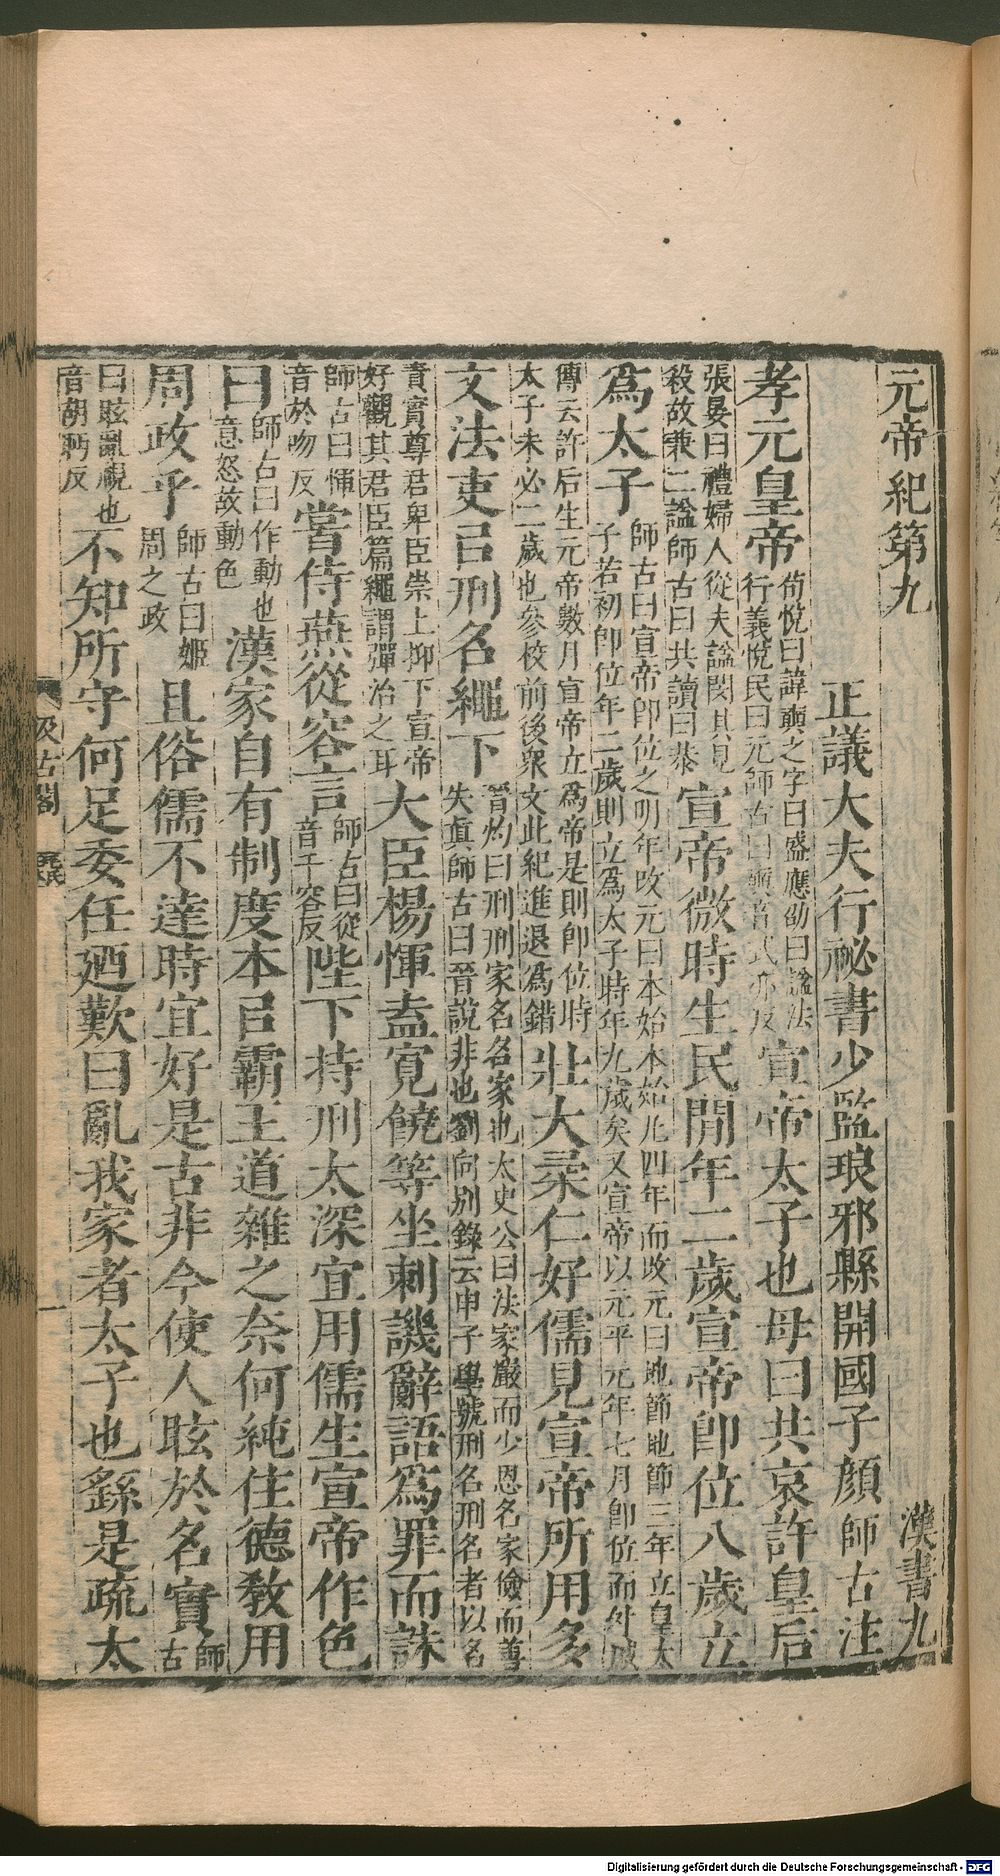 元帝紀第九 漢書九
正議大夫行祕書少監琅邪縣開國子顏師古注
孝元皇帝荀悅曰諱奭之字曰盛應劭曰諡法行義悅民曰元師古曰奭音式亦反宣帝太子也母曰共哀許皇后
張晏曰禮婦人從夫諡閔其見殺故兼二諡師古曰共讀曰恭宣帝微時生民閒年二歲宣帝卽位八歲立
爲太子師古曰宣帝卽位之明年改元曰本始本始凡四年而改元曰地節地節三年立皇太子若初卽位年二歲則立爲太子時年九歲矣又宣帝以元平元年七月卽位而外戚
傳云許后生元帝數月宣帝立爲帝是則卽位時太子未必二歲也參校前後衆文此紀進退爲錯壯大柔仁好儒見宣帝所用多
文法吏㠯刑名繩下晉灼曰刑刑家名名家也太史公曰法家嚴而少恩名家儉而善失眞師古曰晉說非也劉向別錄云申子學號刑名刑名者以名
責實尊君卑臣崇上抑下宣帝好觀其君臣篇繩謂彈治之耳大臣楊惲盍寬饒等坐刺譏辭語爲罪而誅
師古曰惲音於吻反嘗侍燕從容言師古曰從音千容反陛下持刑太深宜用儒生宣帝作色
曰師古曰作動也意怒故動色漢家自有制度本㠯霸王道雜之奈何純住德敎用
周政乎師古曰姬周之政且俗儒不達時宜好是古非今使人眩於名實師古
曰眩亂視也音胡眄反不知所守何足委任廼歎曰亂我家者太子也繇是疏太
汲古閣
一
Digitalisierung gefördert durch die Deutsche Forschungsgemeinschaft - DFG